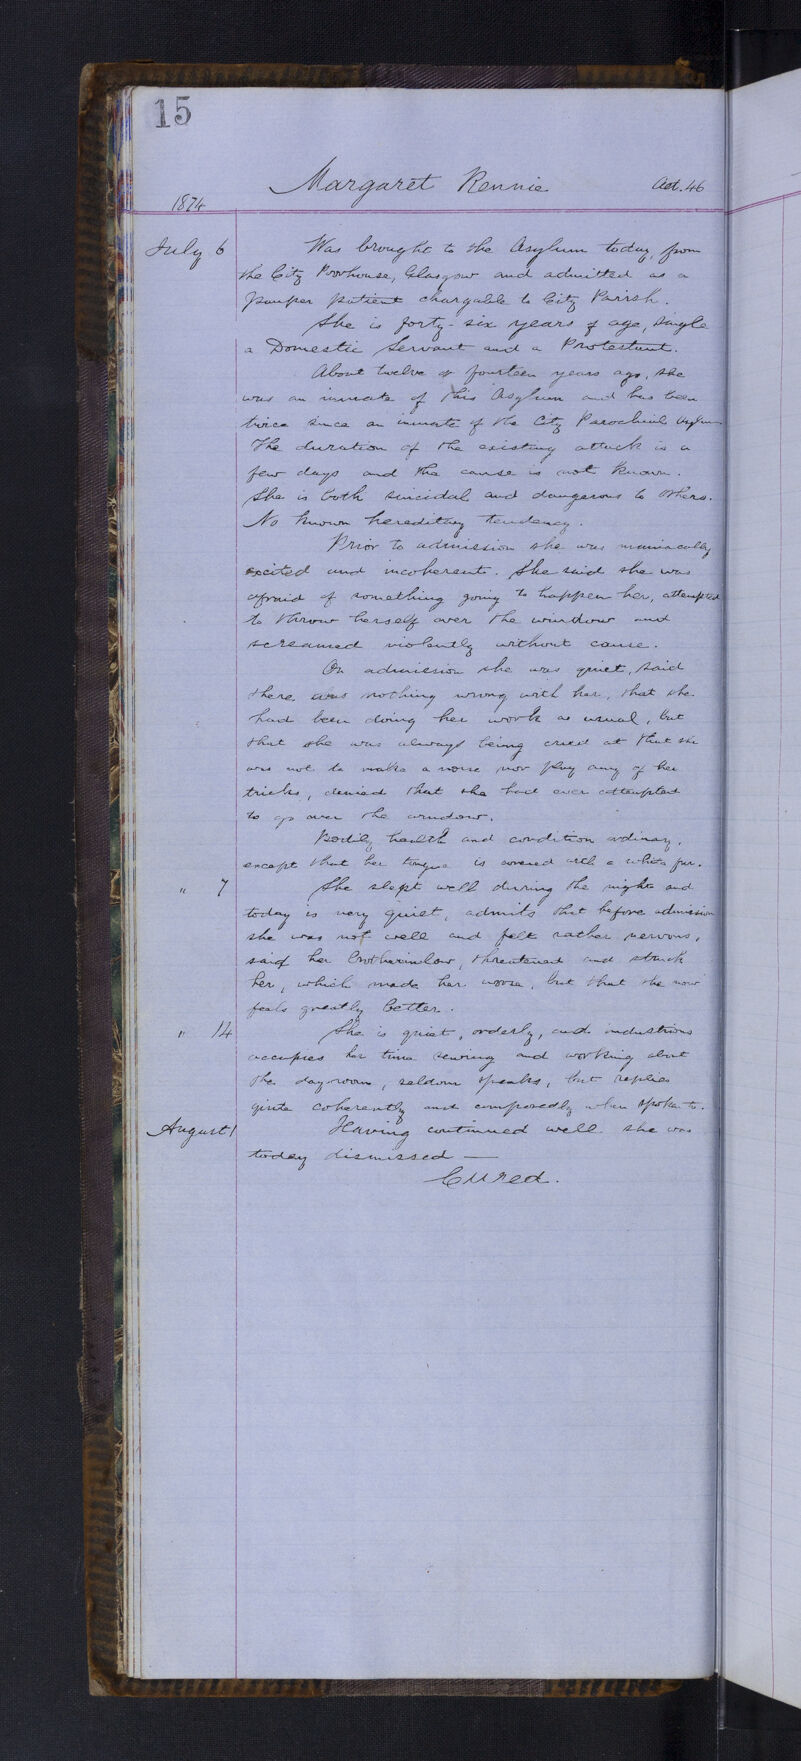 15
Margaret Rennie Aet. 46
1874
July 6 Was brought to the Asylum today, from
the City Poorhouse, Glasgow and admitted as a
pauper patient chargable to City Parish.
She is forty-six years of age, single
a Domestic Servant and a Protestant.
About twelve or fourteen years ago, she
was an inmate of this Asylum and has been
twice since an inmate of the City Parochial Asylum
The duration of the existing attack is a
few days and the cause is not known.
She is both suicidal and dangerous to others.
No known hereditary tendency.
Prior to admission she was maniacally
excited and incoherent. She said she was
afraid of something going to happen her, attempted
to throw herself over the window and
screamed violently without cause.
On admission she was quiet, said
there was nothing wrong with her, that she
had been doing her work as usual, but
that she was always being cried at that she
was not to make a noise nor play any of her
tricks, denied that she had ever attempted
to go over the window.
Bodily health and condition ordinary,
except that her tongue is covered with a white fur.
" 7 She slept well during the night and
today is very quiet, admits that before admission
she was not well and felt rather nervous,
said her brotherinlaw, threatened and struck
her, which made her worse, but that she now
feels greatly better.
" 14 She is quiet, orderly, and industrious
occupies her time sewing and working about
the dayroom, seldom speaks, but replies
quite coherently and composedly when spoken to.
August 1 Having continued well she was
today dismissed —
Cured.